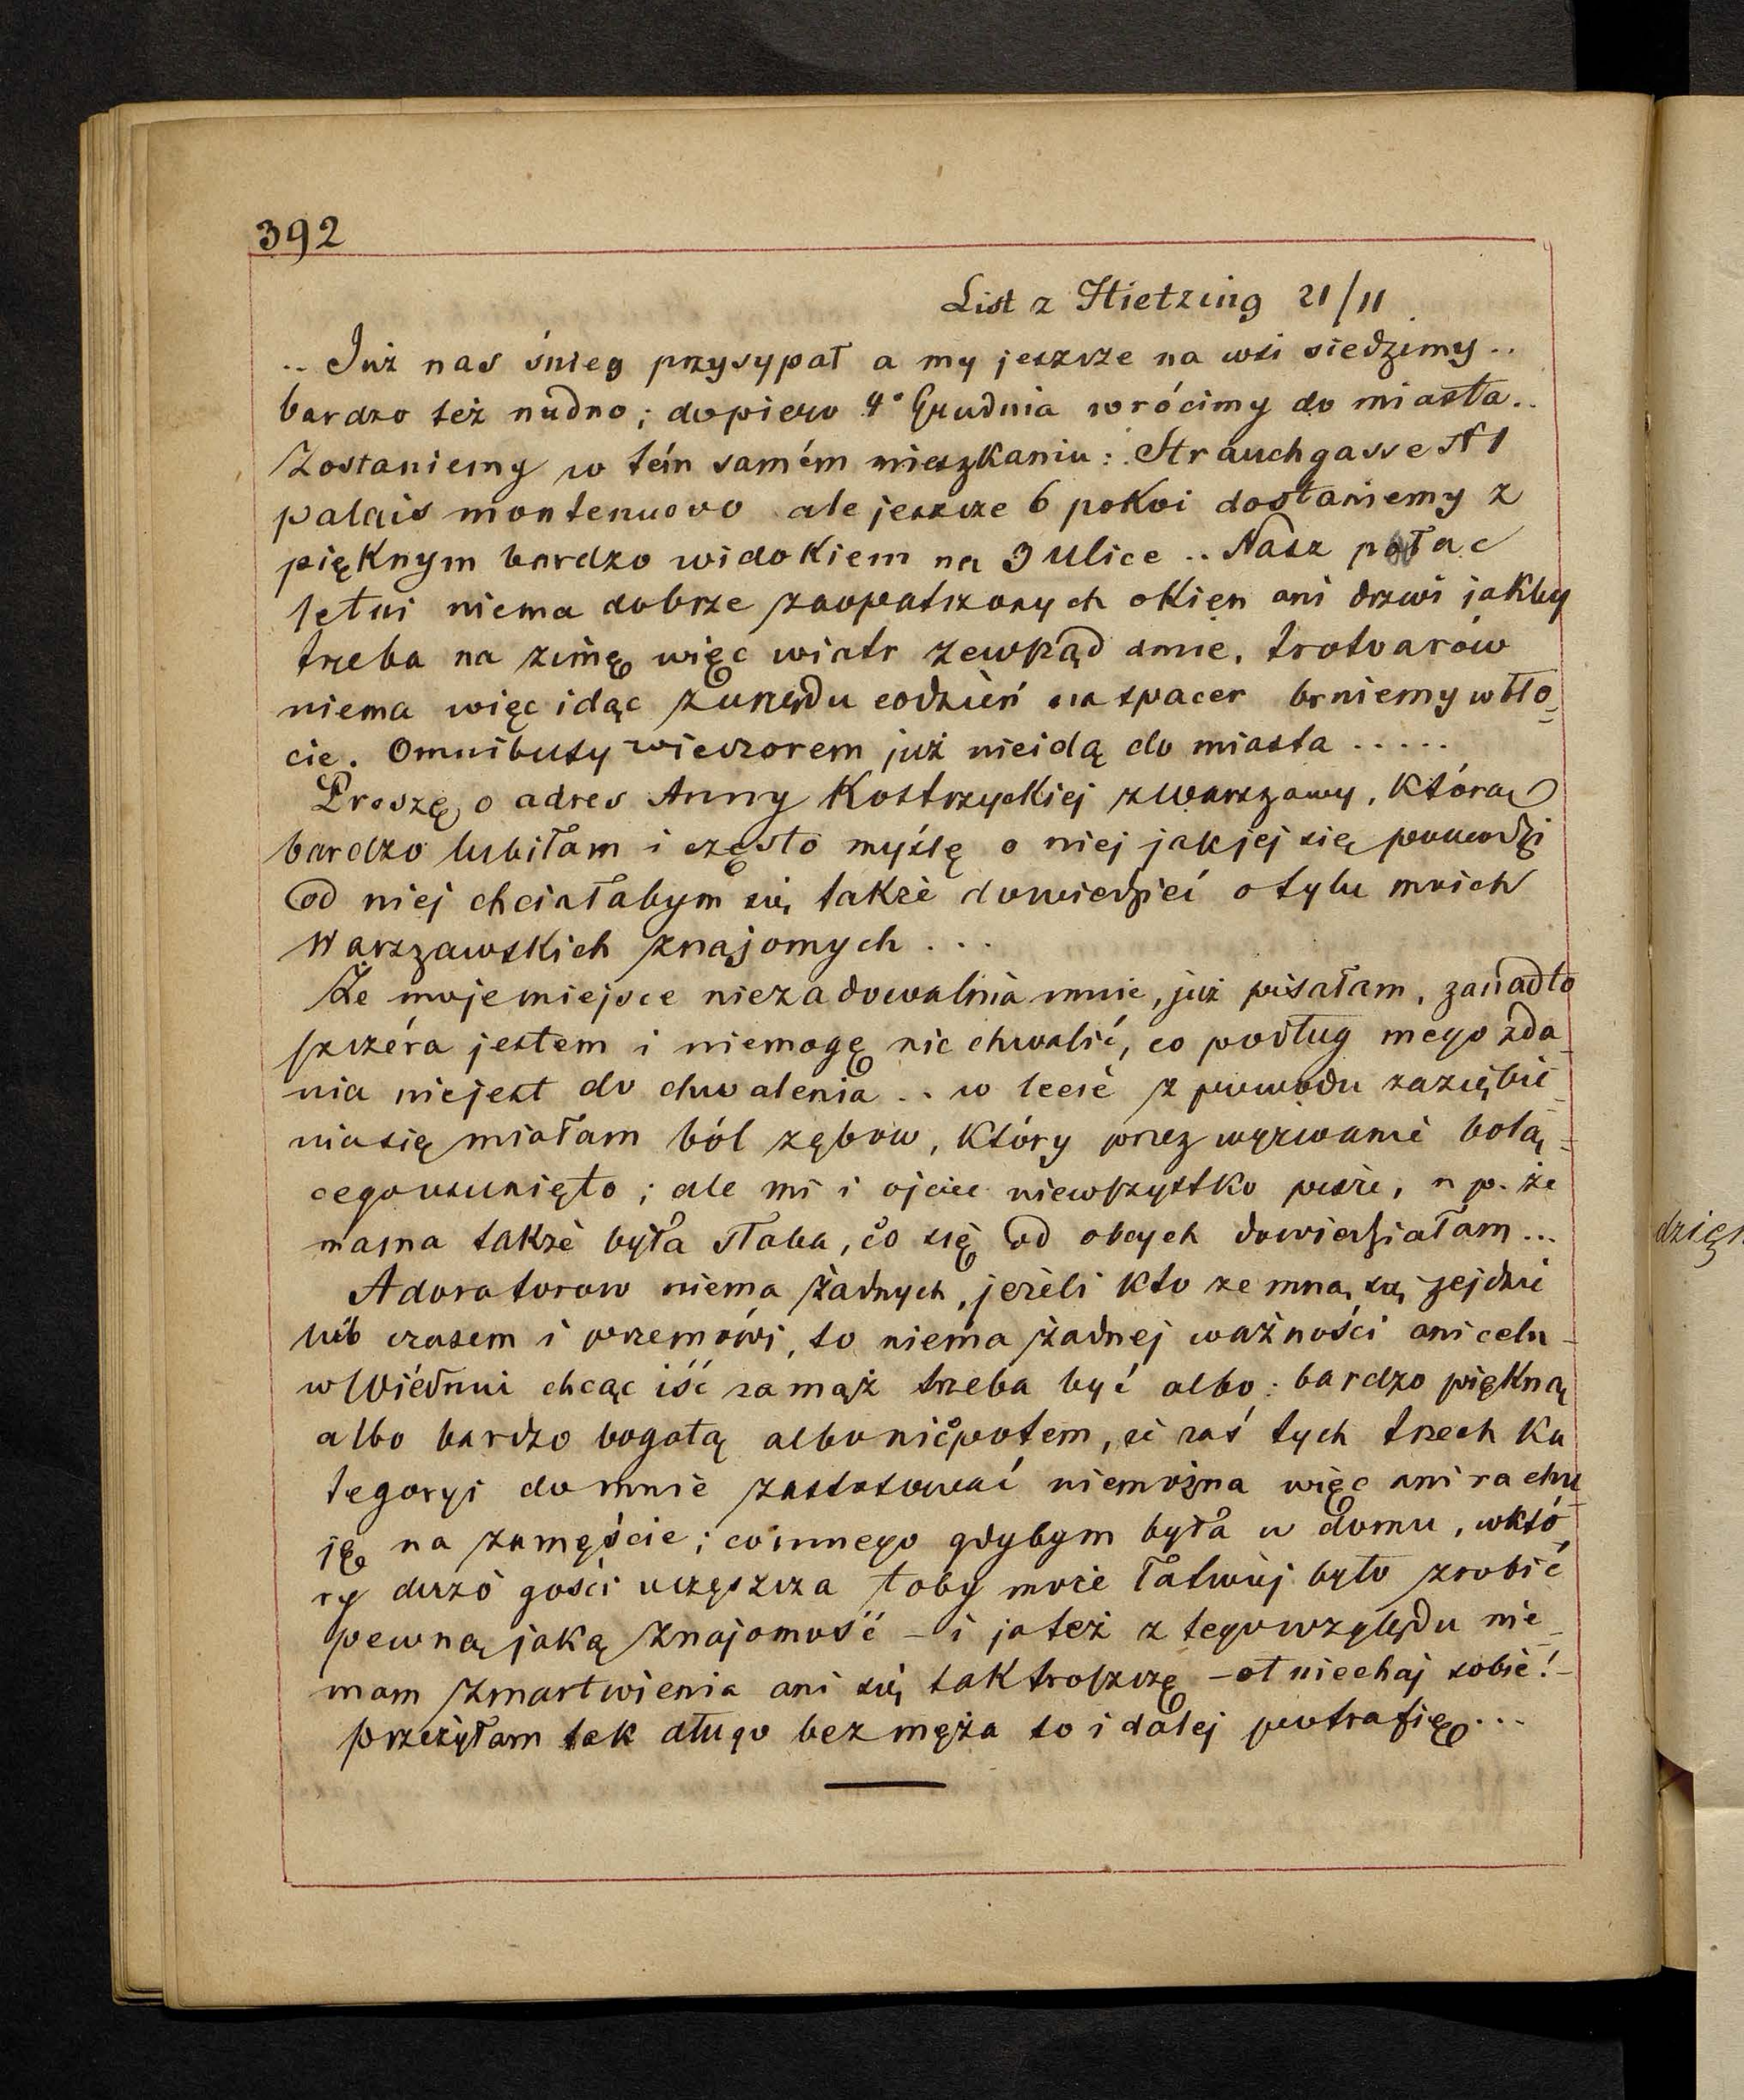 392
List z Hietzing 21/11
.. Już nas śnieg przysypał a my jeszcze na wsi siedzimy ..
bardzo też nudno; dopiero 4° Grudnia wrócimy do miasta ..
Zostaniemy w tém samém mieszkaniu: Strauchgasse N 1
palais montenuovo ale jeszcze 6 pokoi dostaniemy z
pięknym bardzo widokiem na 3 ulice .. Nasz pałac
letni niema dobrze zaopatrzonych okien ani drzwi jakby
trzeba na zimę więc wiatr zewkąd dmie, trotuarów
niema więc idąc z urzędu codzień na spacer brniemy w bło-
cie. Omnibusy wieczorem już nieidą do miasta .....
Proszę o adres Anny Kostrzyckiej z Warszawy, którą
bardzo lubiłam i często myślę o niej jak jej się powodzi
od niej chciałabym się także dowiedzieć o tylu moich
Warszawskich znajomych ...
Że moje miejsce niezadowalnia mnie, już pisałam, zanadto
szczéra jestem i niemogę nic chwalić, co podług mego zda-
nia niejest do chwalenia .. w lecie z powodu zaziębie-
nia się miałam ból zębow, który przez wyrwanie bolą-
cego usunięto; ale mi i ojciec niewszystko pisze, n p. że
mama także była słaba, co się od obcych dowiedziałam ...
Adoratorow niema żadnych, jeżeli kto ze mną się zejdzie
lub czasem i przemówi, to niema żadnej ważności ani celu -
w Wiédniu chcąc iść zamąż trzeba być albo: bardzo piękną
albo bardzo bogatą albo nicpotem, że zaś tych trzech ka
tegoryi do mnie zastosować niemożna więc ani rachu-
ję na zamęście; coinnego gdybym była w domu, w któ
ry dużo gości uczęszcza toby może łatwiej było zrobić
pewną jaką znajomość - i ja też z tego względu nie-
mam zmartwienia ani się tak troszczę - ot niechaj sobie! -
przeżyłam tak długo bez męża to i dalej potrafię ...